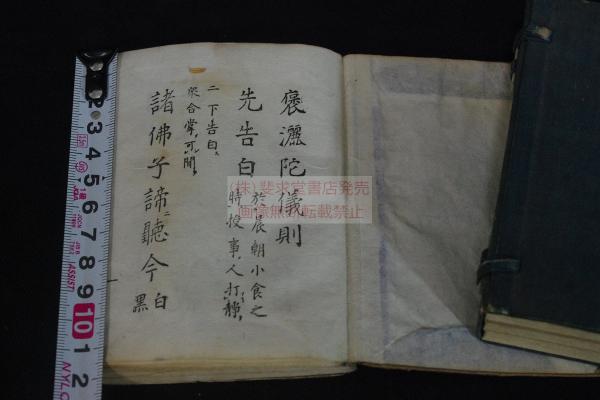 褒灑陀儀則
先告白
於晨朝小食之
時授事人打静
二下告白
眾合掌可聞
諸佛子諦聽今
白
黒
(株)斐求堂書店発売
画像無断転載禁止
2 3 4 5 6 7 8 9 10 1 2
NYLC